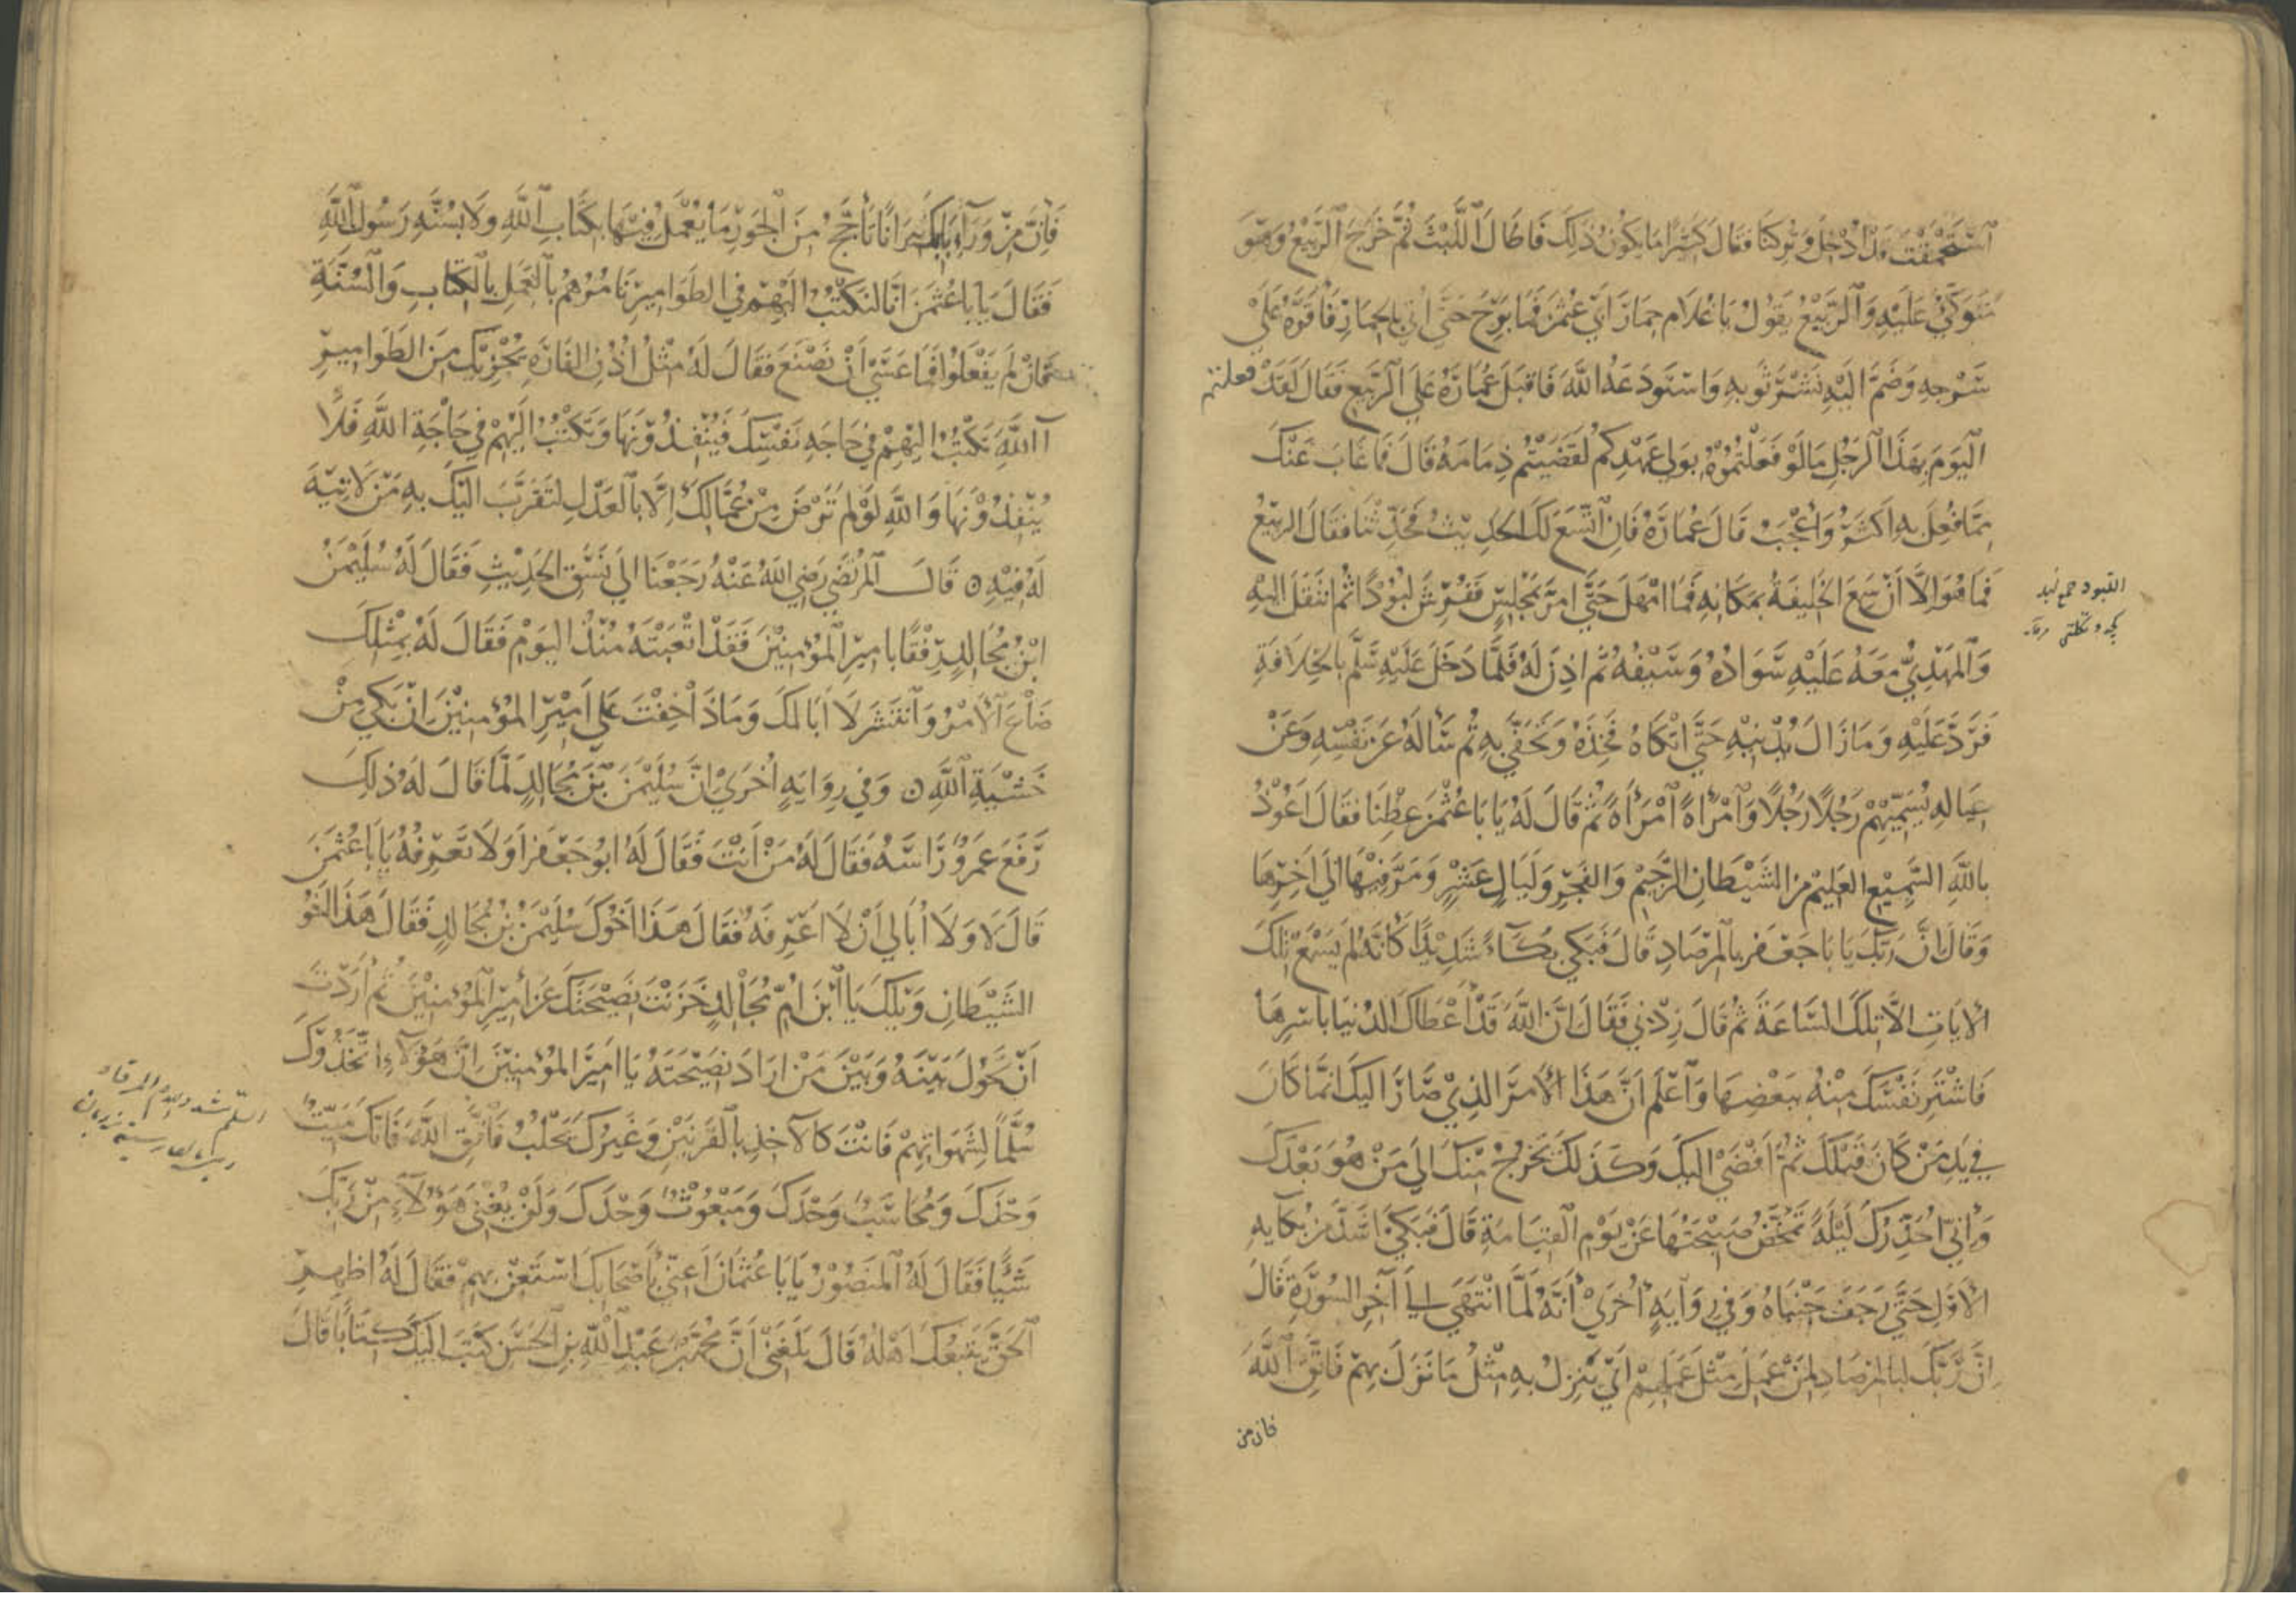 اُسْتُحْمِقْتَ قَدْ اُدْخِلَ وَتُرِكْنَا فَقَالَ كَثِيرًا مَا يَكُونُ ذَلِكَ فَاَطَالَ اللَّبْثَ ثُمَّ خَرَجَ الرَّبِيعُ وَهُوَ
مُتَوَكِّئٌ عَلَيْهِ وَالرَّبِيعُ يَقُولُ يَا غُلَام حِمَارَ اَبِي عُثْمَنَ فَمَا بَرِحَ حَتَّى اُتِيَ بِالحِمَارِ فَاَقَرَّهُ عَلَى
سَرْجِهِ وَضَمَّ اِلَيْهِ نَشْرَ ثَوْبِهِ وَاسْتَودَعَهُ اللَّهَ فَاَقبَلَ عُمَارَةُ عَلَى الرَّبِيعِ فَقَالَ لَقَدْ فعلتم
اليَوْمَ بِهَذَا الرَّجُلِ مَا لَوْ فَعَلْتُمُوْهُ بِوَلِيِّ عَهْدِكُمْ لَقَضَيْتُمْ ذِمَامَهُ قَالَ فَمَا غَابَ عَنْكَ
مِمَّا فُعِلَ بِهِ اَكْثَرُ وَاَعْجَبُ قَالَ عُمَارَةُ فَاِنِ اتَّسَعَ لَكَ الحَدِيثُ فَحَدِّثْنَا فَقَالَ الرَّبِيْعُ
فَمَا هُوَ اِلَّا اَنْ سَمِعَ الخَلِيفَةُ بِمَكَانِهِ فَمَا اَمْهَلَ حَتَّى اَمَرَ بِمَجْلِسٍ فَفُرِشَ لُبُوْدًا ثُمَّ انْتَقَلَ اِلَيْهِ
وَالمَهْدِيُّ مَعَهُ عَلَيْهِ سَوَادُهُ وَسَيْفُهُ ثُمَّ اَذِنَ لَهُ فَلَمَّا دَخَلَ عَلَيْهِ سَلَّمَ بِالخِلَافَةِ
فَرَدَّ عَلَيْهِ وَمَا زَالَ يُدْنِيْهِ حَتَّى اَتْكَاهُ فَخِذَهُ وَتَحَفَّى بِهِ ثُمَّ سَاَلَهُ عَنْ نَفْسِهِ وَعَنْ
عِيَالِهِ يُسَمِّيْهِمْ رَجُلًا رَجُلًا وَامْرَاَةً امْرَاَةً ثُمَّ قَالَ لَهُ يَا بَا عُثْمَنَ عِظْنَا فَقَالَ اَعُوْذُ
بِاللَّهِ السَّمِيْعِ العَلِيْمِ مِنَ الشَّيْطَانِ الرَّجِيْمِ وَالفَجْرِ وَلَيَالٍ عَشْرٍ وَمَرَّ فِيْهَا اِلَى اٰخِرِهَا
وَقَالَ اِنَّ رَبَّكَ يَا بَا جَعْفَر بِالمِرْصَادِ قَالَ فَبَكَى بُكَاءً شَدِيْدًا كَاَنَّهُ لَمْ يَسْمَعْ تِلْكَ
الاٰيَاتِ اِلَّا تِلْكَ السَّاعَةَ ثُمَّ قَالَ زِدْنِي فَقَالَ اِنَّ اللَّهَ قَدْ اَعْطَاكَ الدُّنْيَا بِاَسْرِهَا
فَاشْتَرِ نَفْسَكَ مِنْهُ بِبَعْضِهَا وَاعْلَمْ اَنَّ هَذَا الاَمْرَ الَّذِي صَارَ اِلَيْكَ اِنَّمَا كَانَ
فِي يَدِ مَنْ كَانَ قَبْلَكَ ثُمَّ اَفْضَى اِلَيْكَ وَكَذَلِكَ يَخْرُجُ مِنْكَ اِلَى مَنْ هُوَ بَعْدَكَ
وَاِنِّي اُحَذِّرُكَ لَيْلَةً تَمَخَّضُ صَبِيْحَتُهَا عَنْ يَوْمِ القِيَامَةِ قَالَ فَبَكَى اَشَدَّ مِنْ بُكَائِهِ
الاَوَّلِ حَتَّى رَجَفَ جَنْبَاهُ وَفِي رِوَايَةٍ اُخْرَى اَنَّهُ لَمَّا انْتَهَى اِلَى اٰخِرِ السُّوْرَةِ قَالَ
اِنَّ رَبَّكَ لَبِالمِرْصَادِ لِمَنْ عَمِلَ مِثْلَ عَمَلِهِمْ اَنْ يَنْزِلَ بِهِ مِثْلُ مَا نَزَلَ بِهِمْ فَاتَّقِ اللَّهَ
فان من
اللبود جمع لبد
فَاِنَّ مِنْ وَرَاءِ بَابِكَ نِيرَانًا تَاَجَّجُ مِنَ الجَوْرِ مَا يُعْمَلُ فِيْهَا بِكِتَابِ اللَّهِ وَلَا بِسُنَّةِ رَسُولِ اللَّهِ
فَقَالَ يَا بَا عُثْمَنَ اِنَّا لَنَكْتُبُ اِلَيْهِمْ فِي الطَّوَامِيرِ نَامُرُهُمْ بِالعَمَلِ بِالكِتَابِ وَالسُّنَّةِ
فَاِنْ لَمْ يَفْعَلُوا فَمَا عَسَى اَنْ نَصْنَعَ فَقَالَ لَهُ مِثْلُ اُذُنِ الفَارَةِ يُجْزِيْكَ مِنَ الطَّوَامِيرِ
آ اللَّهِ تَكْتُبُ اِلَيْهِمْ فِي حَاجَةِ نَفْسِكَ فَيُنْفِذُوْنَهَا وَتَكْتُبُ اِلَيْهِمْ فِي حَاجَةِ اللَّهِ فَلَا
يُنْفِذُوْنَهَا وَاللَّهِ لَوْ لَمْ تَرْضَ مِنْ عُمَّالِكَ اِلَّا بِالعَدْلِ لَتَقَرَّبَ اِلَيْكَ بِهِ مَنْ لَا نِيَّةَ
لَهُ فِيْهِ ۝ قَالَ المُرْتَضَى رَضِيَ اللهُ عَنْهُ رَجَعْنَا اِلَى نَسَقِ الحَدِيْثِ فَقَالَ لَهُ سُلَيْمَنُ
ابْنُ مُجَالِدٍ رِفْقًا بِاَمِيْرِ المُؤْمِنِيْنَ فَقَدْ اَتْعَبْتَهُ مُنْذُ اليَوْمِ فَقَالَ لَهُ بِمِثْلِكَ
ضَاعَ الاَمْرُ وَانْتَشَرَ لَا اَبَا لَكَ وَمَاذَا خِفْتَ عَلَى اَمِيْرِ المُؤْمِنِيْنَ اِنْ بَكَى مِنْ
خَشْيَةِ اللَّهِ ۝ وَفِي رِوَايَةٍ اُخْرَى اِنَّ سُلَيْمَنَ بْنَ مُجَالِدٍ لَمَّا قَالَ لَهُ ذَلِكَ
رَفَعَ عَمْرٌو رَاْسَهُ فَقَالَ لَهُ مَنْ اَنْتَ فَقَالَ لَهُ اَبُو جَعْفَر اَوَلَا تَعْرِفُهُ يَا بَا عُثْمَنَ
قَالَ لَا وَلَا اُبَالِي اَنْ لَا اَعْرِفَهُ فَقَالَ هَذَا اَخُوْكَ سُلَيْمَنُ بْنُ مُجَالِدٍ فَقَالَ هَذَا اَخُو
الشَّيْطَانِ وَيْلَكَ يَا ابْنَ اُمِّ مُجَالِدٍ خَزَنْتَ نَصِيْحَتَكَ عَنْ اَمِيْرِ المُؤْمِنِيْنَ ثُمَّ اَرَدْتَ
اَنْ تَحُوْلَ بَيْنَهُ وَبَيْنَ مَنْ اَرَادَ نَصِيْحَتَهُ يَا اَمِيْرَ المُؤْمِنِيْنَ اِنَّ هَؤُلَاءِ اتَّخَذُوْكَ
سُلَّمًا لِشَهَوَاتِهِمْ فَاَنْتَ كَالآخِذِ بِالقَرْنَيْنِ وَغَيْرُكَ يَحْلُبُ فَاتَّقِ اللَّهَ فَاِنَّكَ مَيِّتٌ
وَحْدَكَ وَمُحَاسَبٌ وَحْدَكَ وَمَبْعُوْثٌ وَحْدَكَ وَلَنْ يُغْنِيَ هَؤُلَاءِ مِنْ رَبِّكَ
شَيْئًا فَقَالَ لَهُ المَنْصُوْرُ يَا بَا عُثْمَانَ اَعِنِّي بِاَصْحَابِكَ اَسْتَعِنْ بِهِمْ فَقَالَ لَهُ اَظْهِرِ
الحَقَّ يَتْبَعْكَ اَهْلُهُ قَالَ بَلَغَنِي اَنَّ مُحَمَّدَ بْنَ عَبْدِ اللَّهِ بْنِ الحَسَنِ كَتَبَ اِلَيْكَ كِتَابًا قَالَ